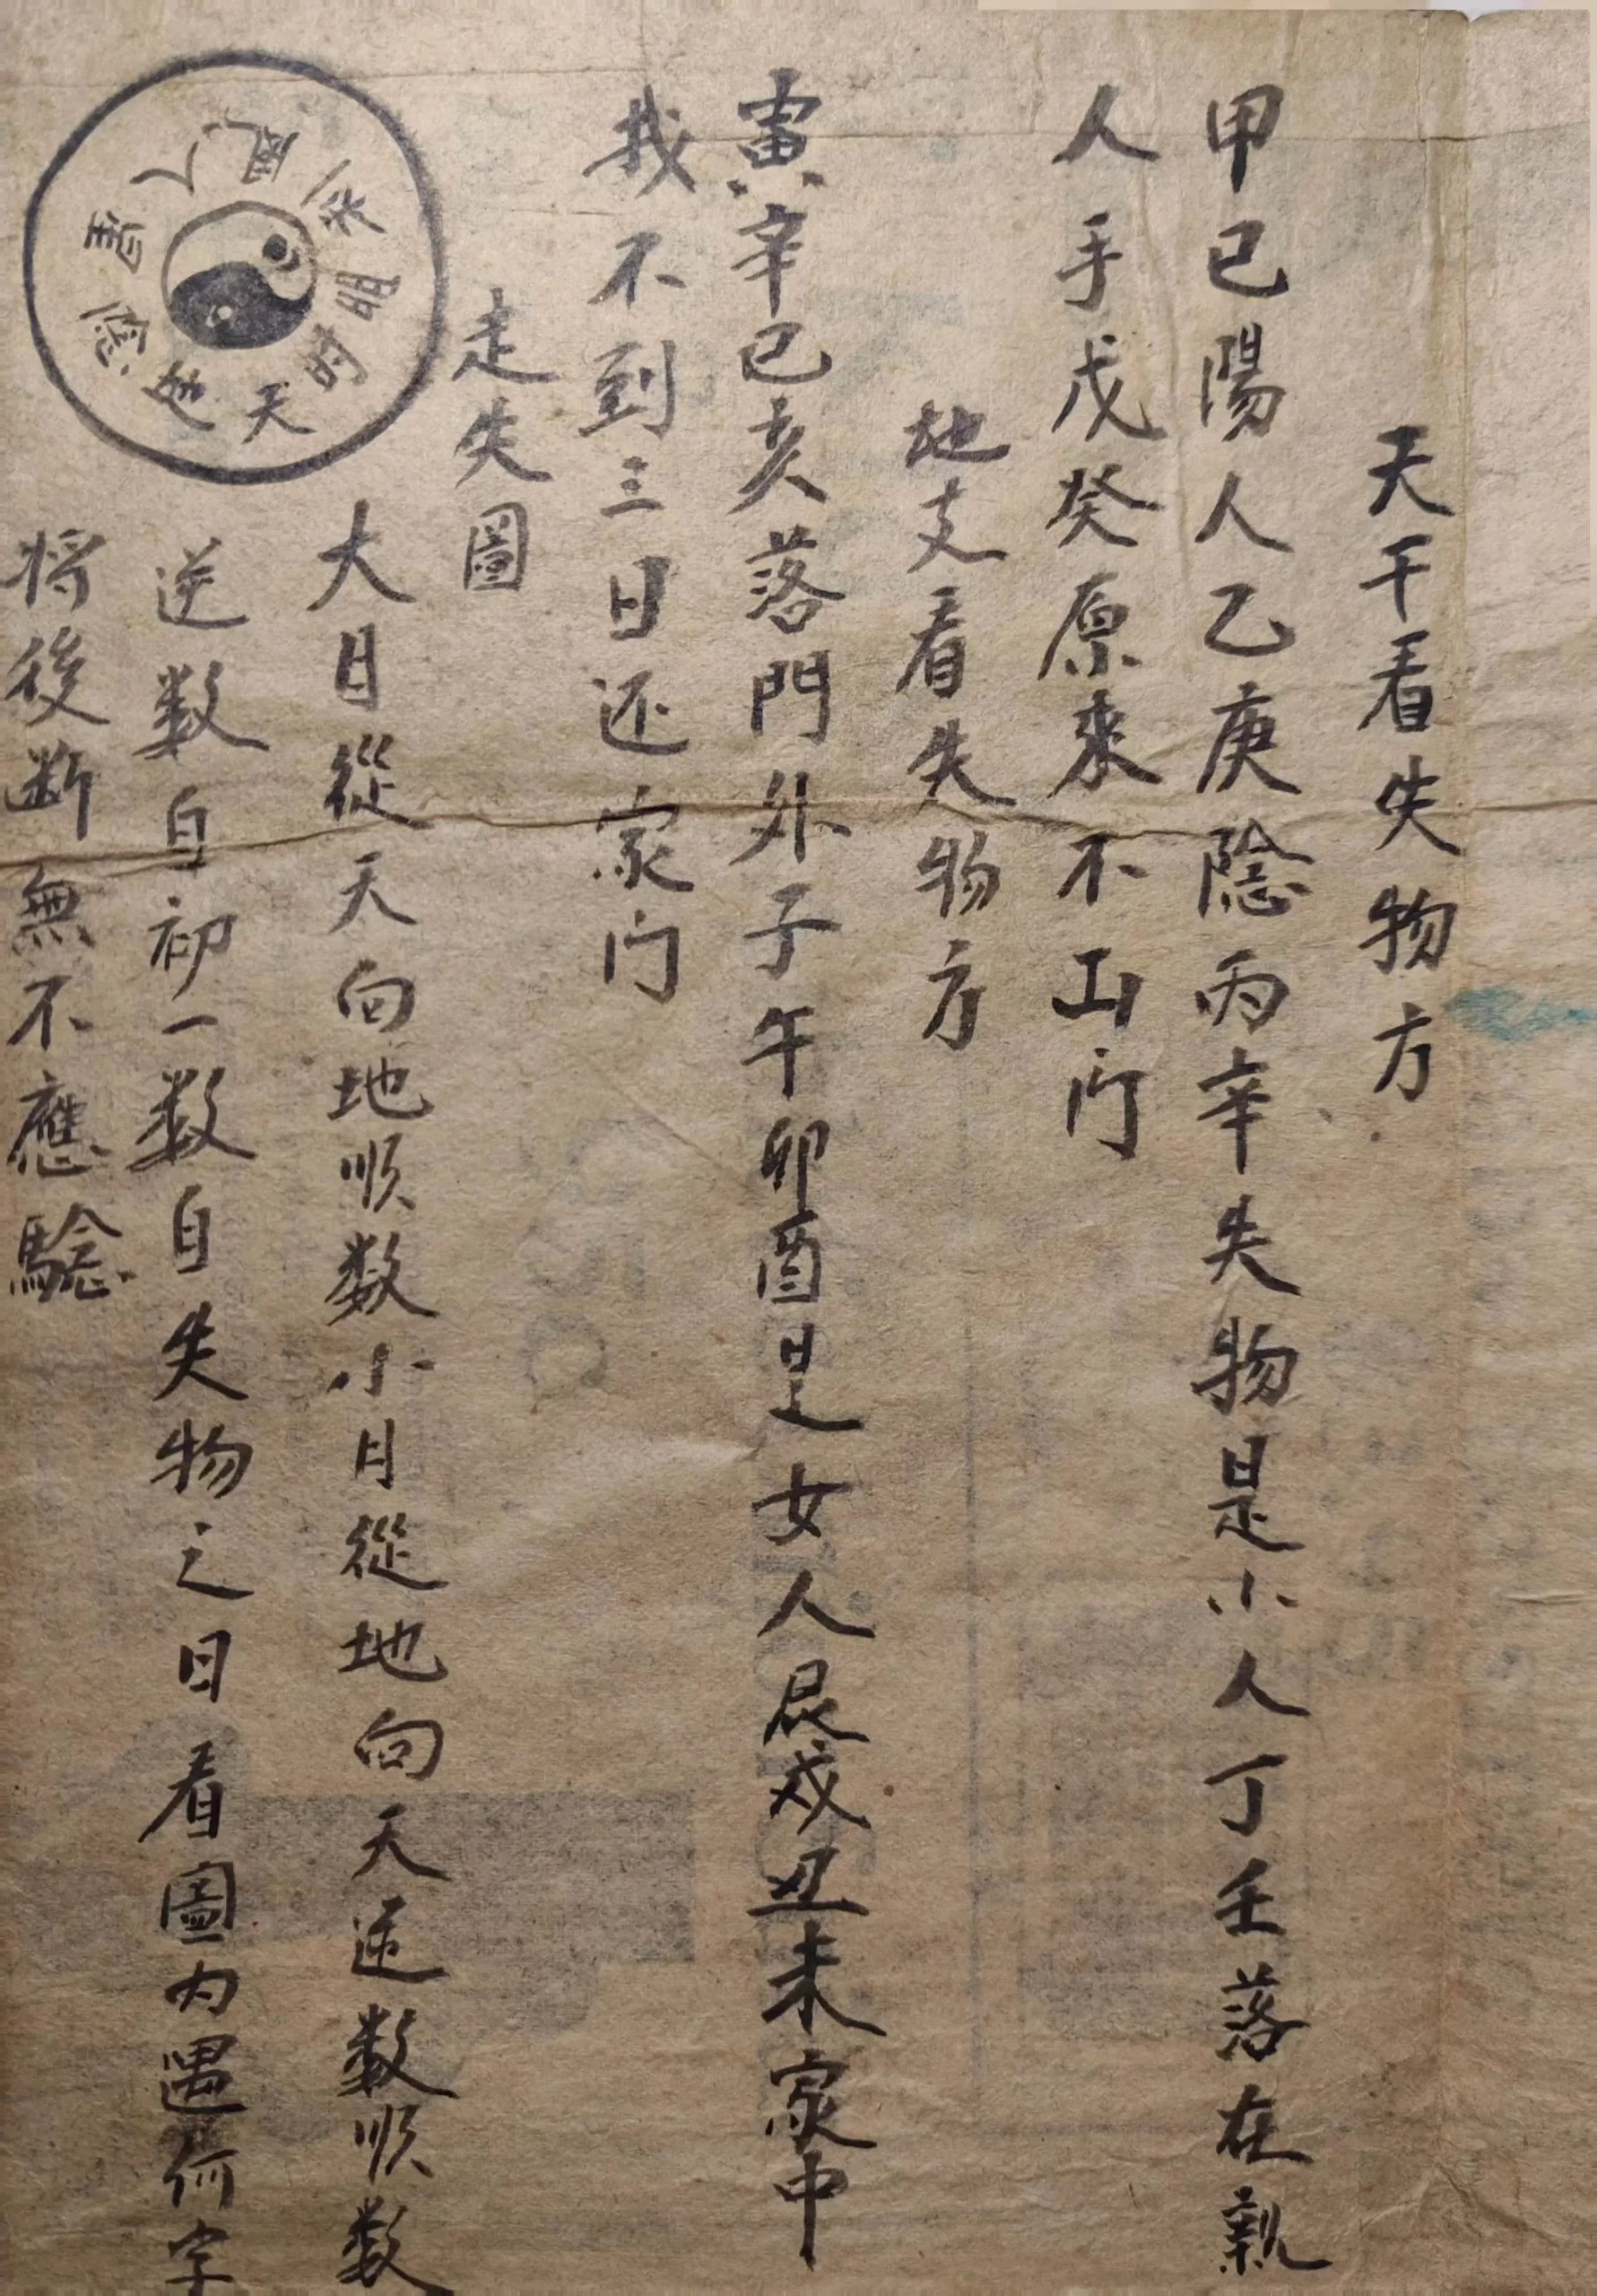 天干看失物方
甲己陽人乙庚隂丙辛失物是小人丁壬落在親
人手戊癸原來不出门
地支看失物方
寅辛巳亥落門外子午卯酉是女人辰戍丑未家中
找不到三日还家门
走失圖
大月從天向地順数小月從地向天逆数順数
逆数自初一数自失物之日看圖内遇何字
将後断無不應騐
天时明
人